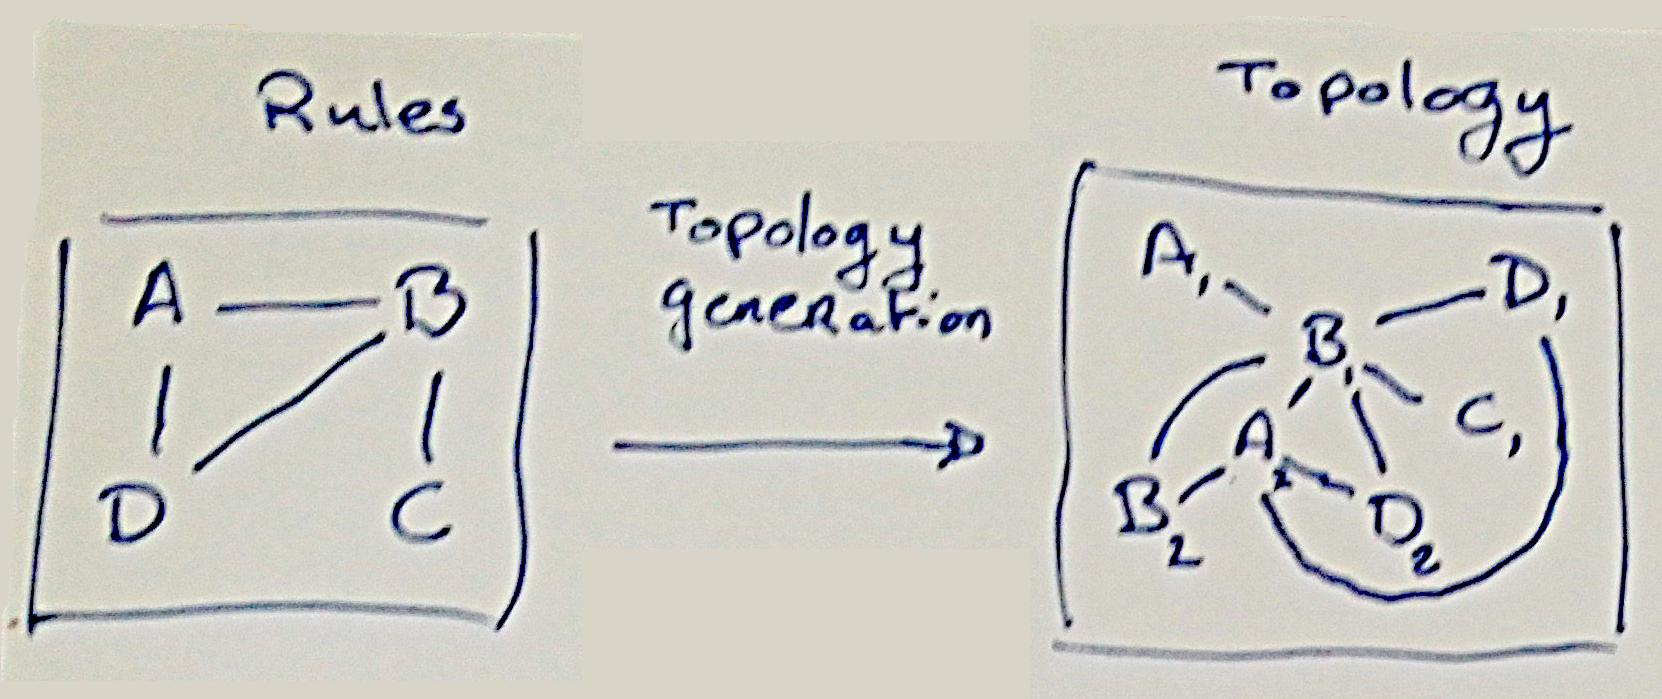 Rules
A B
D C
Topology
generation
Topology
A1 D1
B1
A2 C1
B2 D2